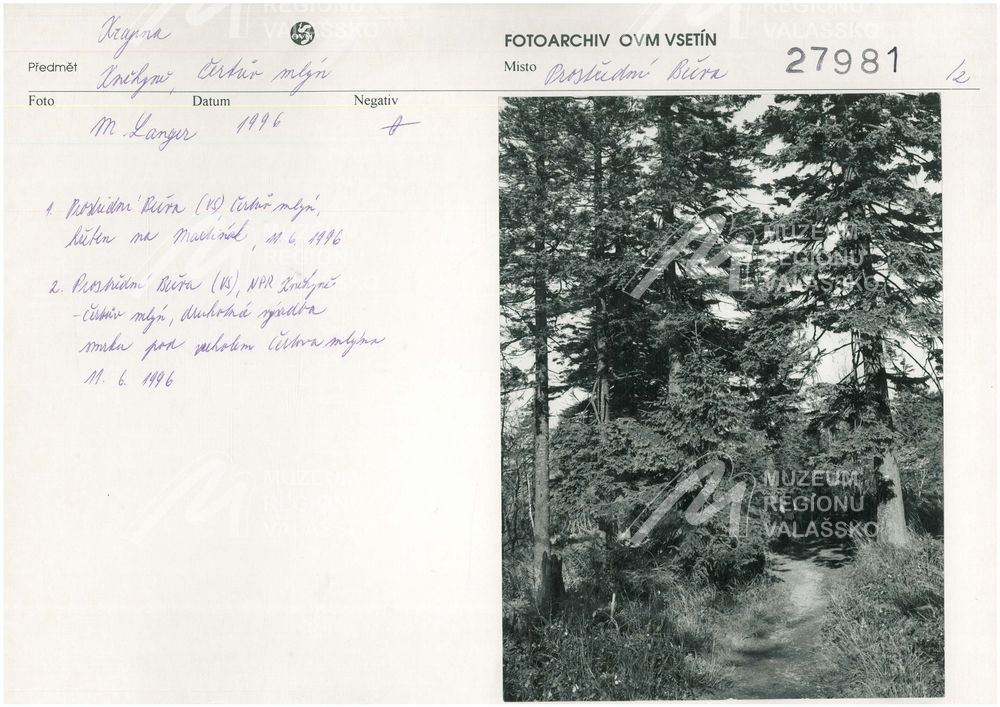 Krajina
OVM
FOTOARCHIV OVM VSETÍN
Předmět Kněhyně, Čertův mlýn
Místo Prostřední Bečva
27981 /2
Foto Datum Negativ
M. Langer 1996
1. Prostřední Bečva (VS) Čertův mlýn,
hřeben na Martiňák, 11. 6. 1996
2. Prostřední Bečva (VS), NPR Kněhyně
- Čertův mlýn, druhotná výsadba
smrku pod vrcholem Čertova mlýna
11. 6. 1996
MUZEUM
REGIONU
VALAŠSKO
MUZEUM
REGIONU
VALAŠSKO
MUZEUM
REGIONU
VALAŠSKO